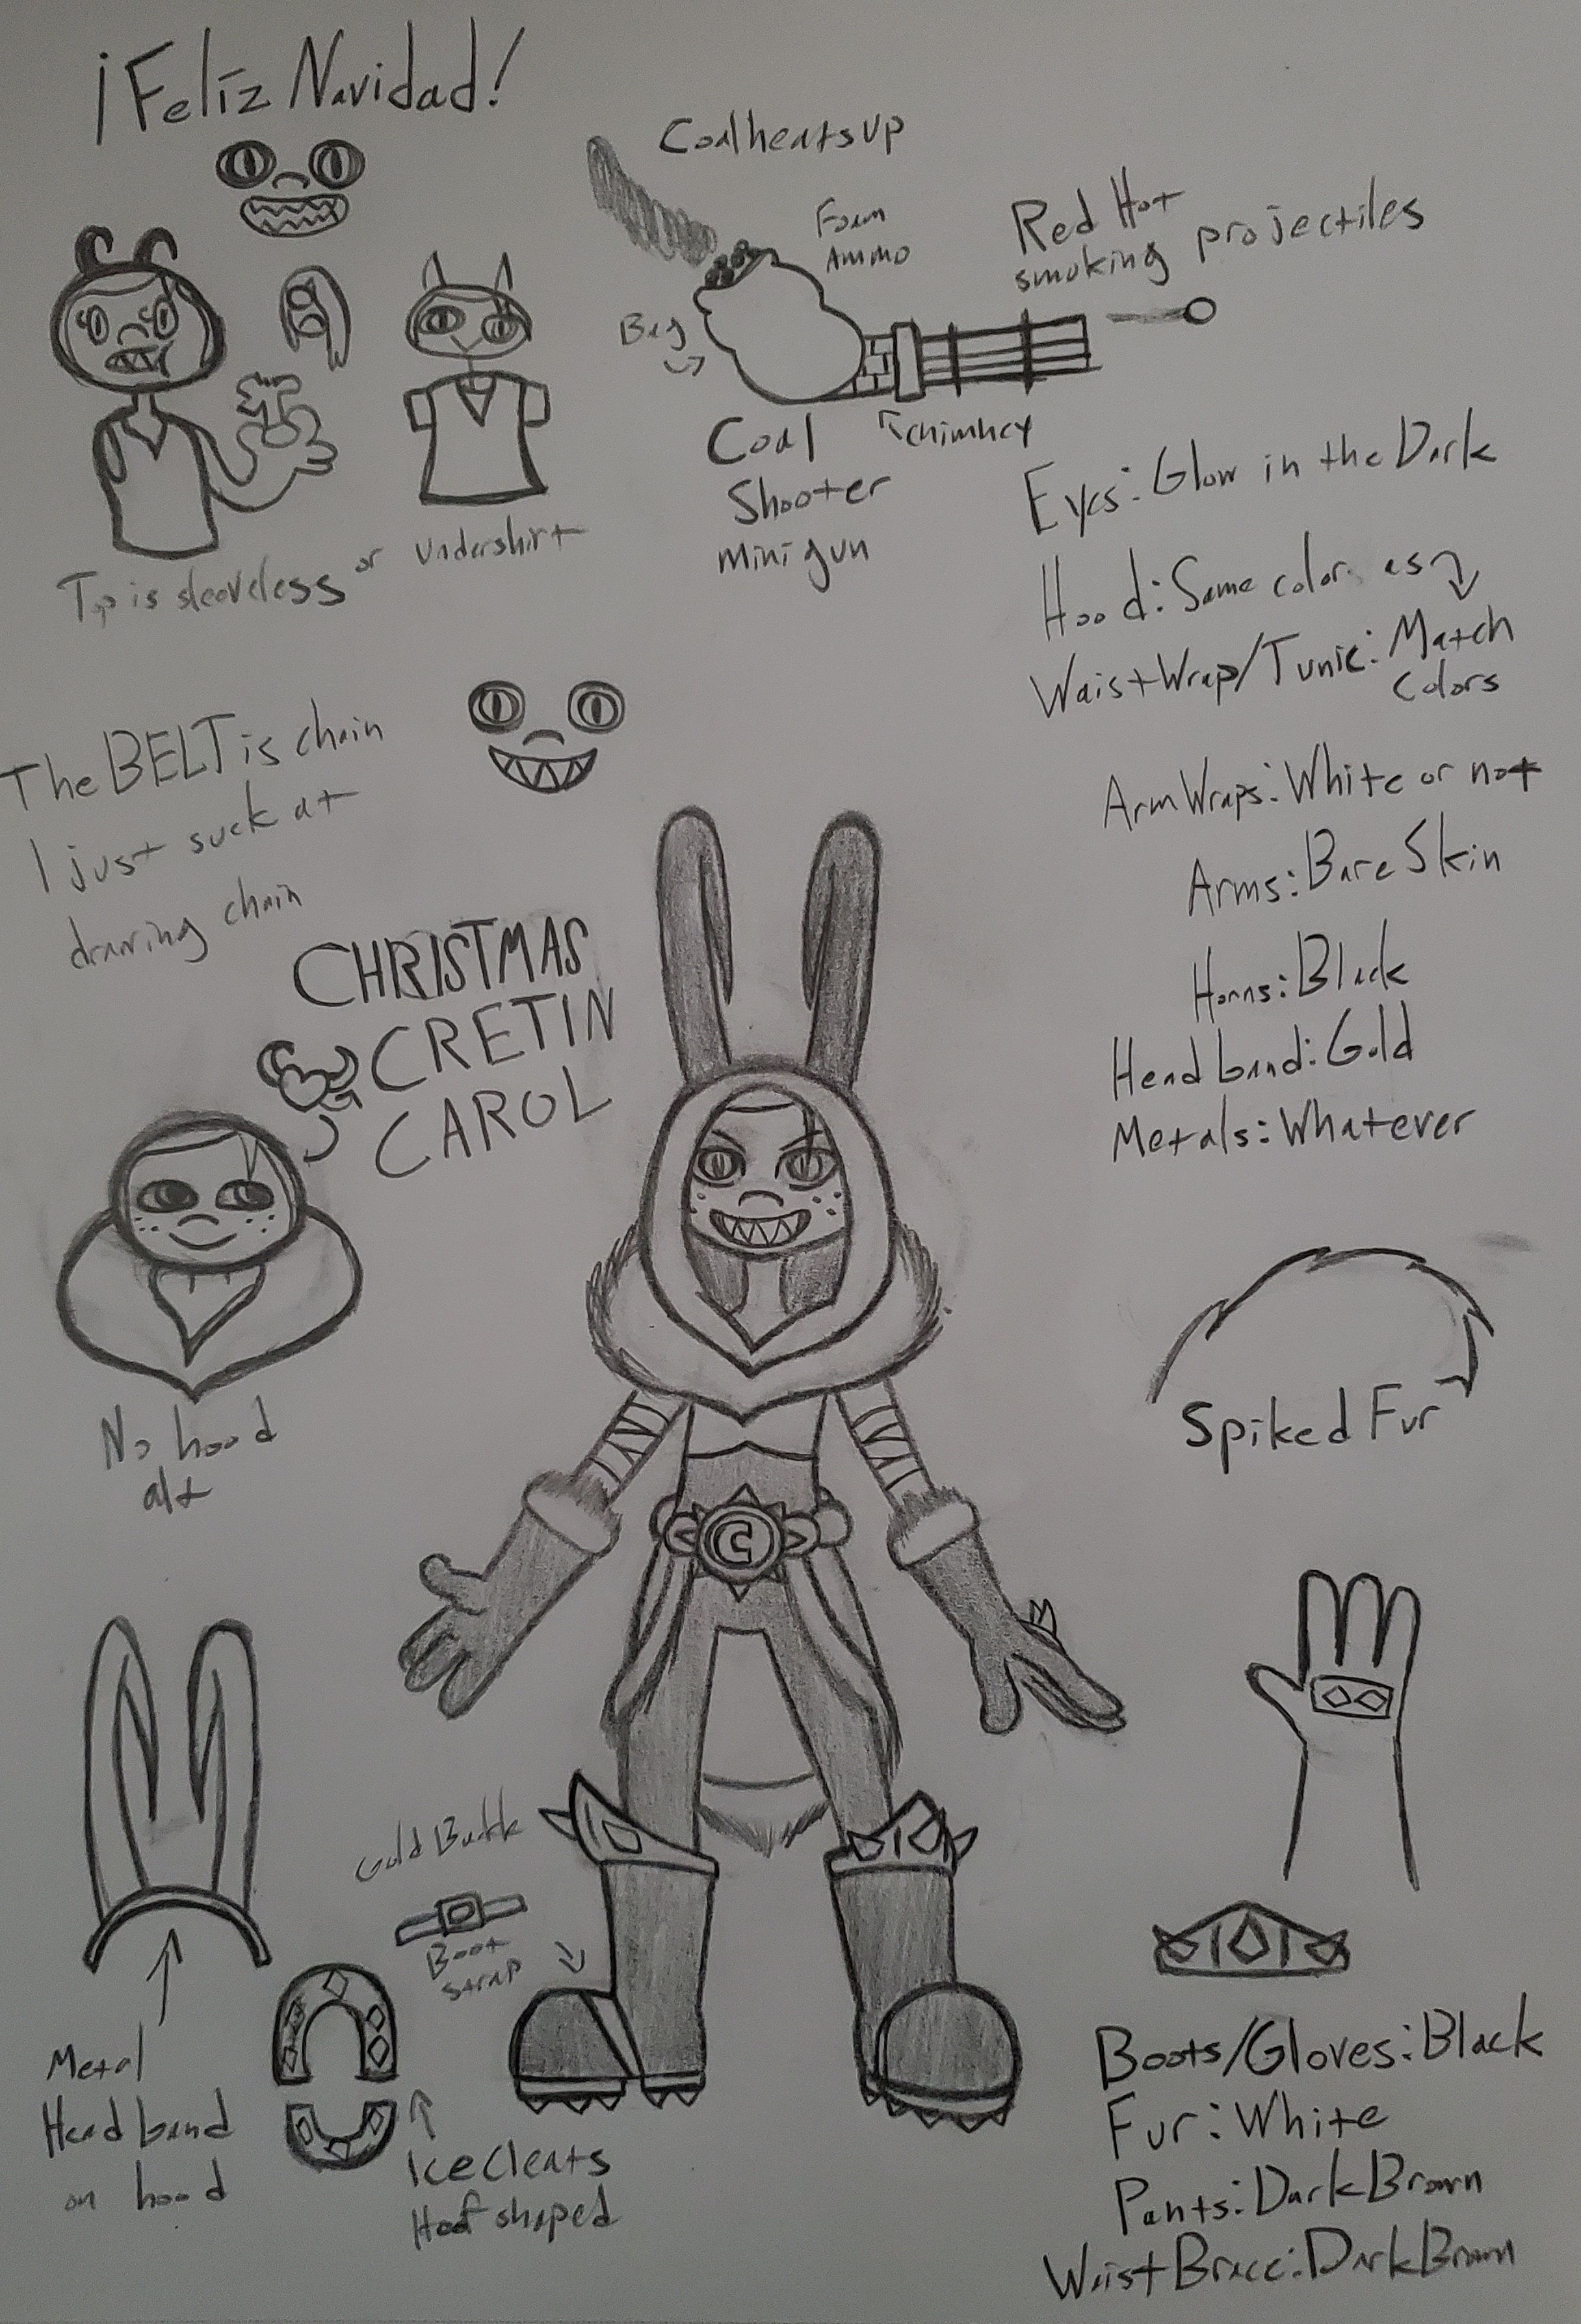 ¡Felíz Navidad!
Coal heats up
Foam
Ammo
Red Hot
smoking projectiles
Bag
chimney
Coal
Shooter
minigun
Top is sleeveless or undershirt
Eyes: Glow in the Dark
Hood: Same color as
Waist Wrap/Tunic: Match
colors
The BELT is chain
I just suck at
drawing chain
Arm Wraps: White or not
Arms: Bare Skin
Horns: Black
Head band: Gold
Metals: Whatever
CHRISTMAS
CRETIN
CAROL
No hood
alt
Spiked Fur
C
Gold Buckle
Boot
strap
Metal
Head band
on hood
Ice Cleats
Hoof shaped
Boots/Gloves: Black
Fur: White
Pants: Dark Brown
Waist Brace: Dark Brown